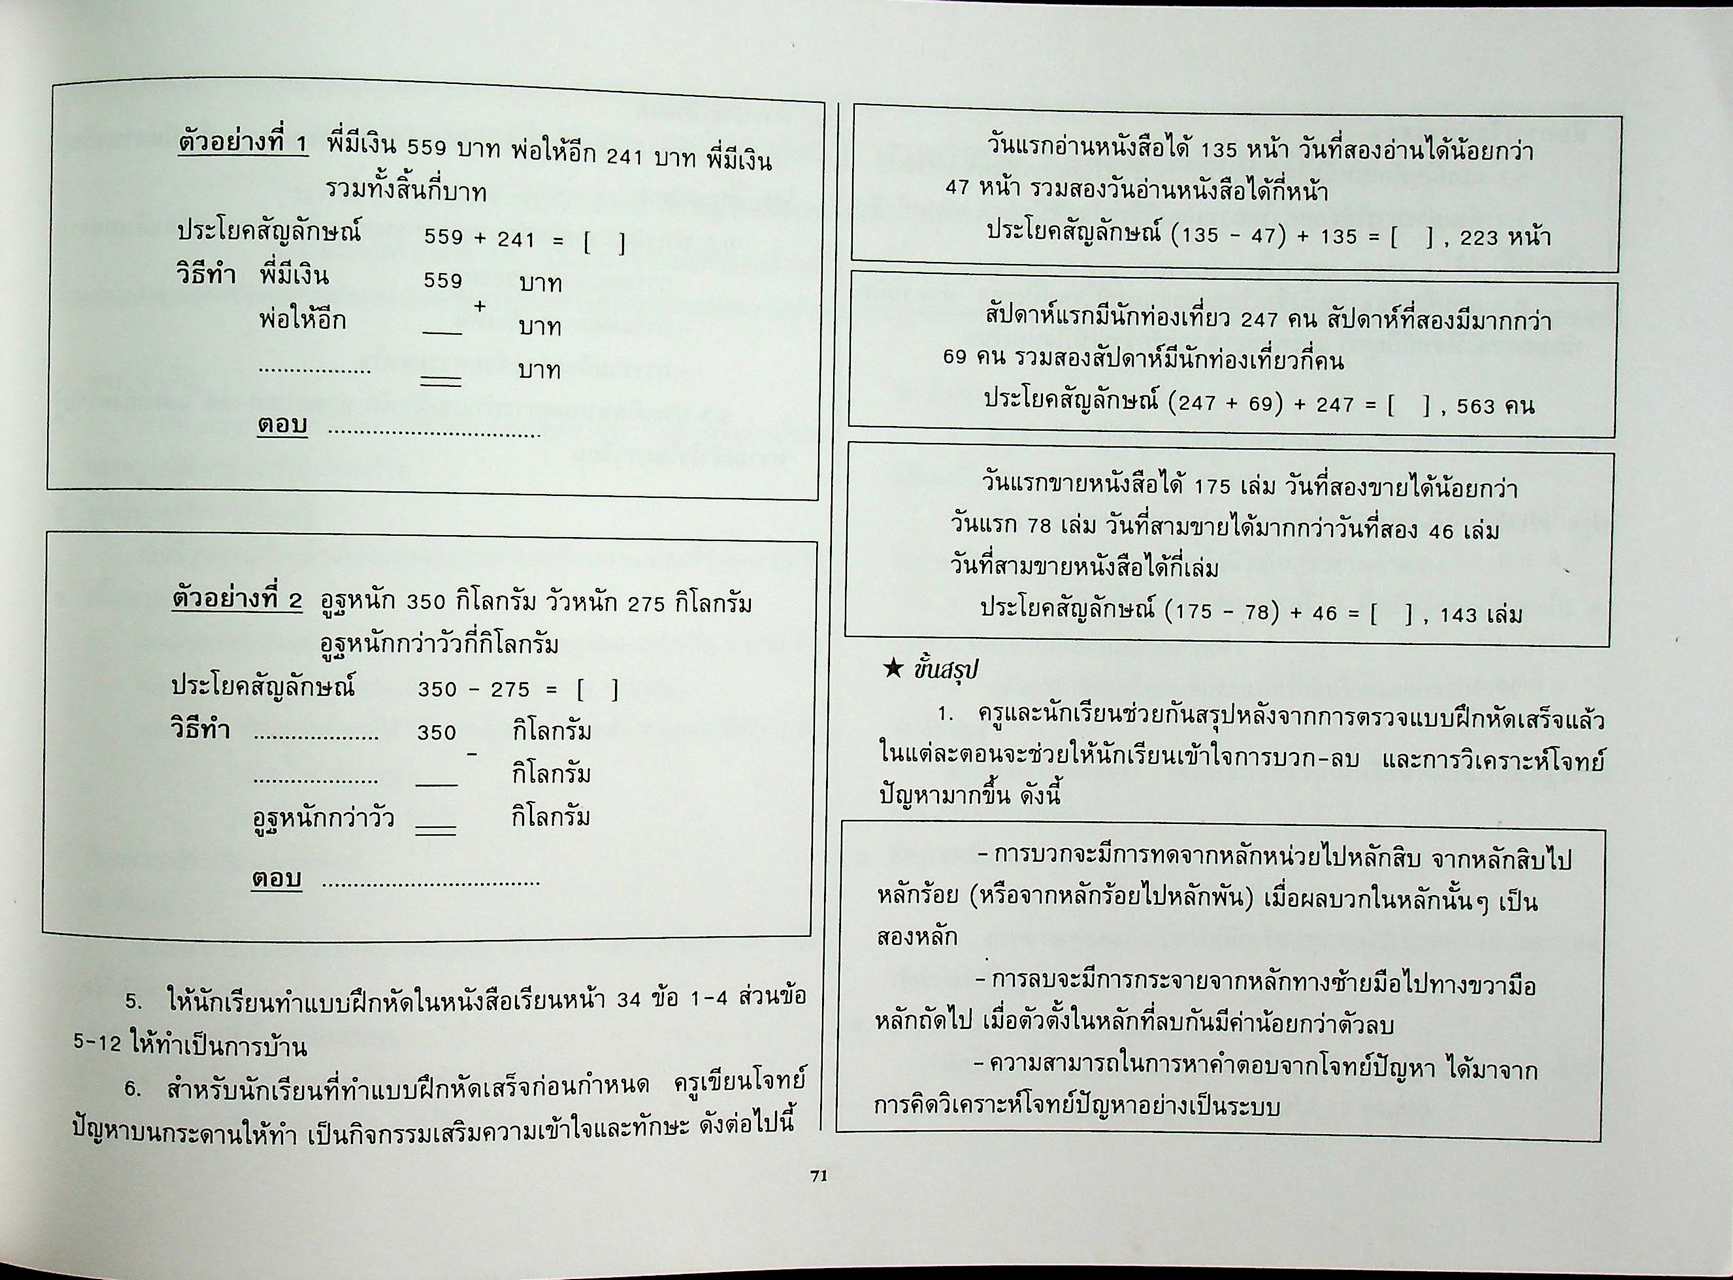 ตัวอย่างที่ 1 พี่มีเงิน 559 บาท พ่อให้อีก 241 บาท พี่มีเงิน
รวมทั้งสิ้นกี่บาท
ประโยคสัญลักษณ์ 559 + 241 = [ ]
วิธีทำ พี่มีเงิน 559 บาท
+
พ่อให้อีก ___ บาท
.................. ___ บาท
ตอบ ................................
ตัวอย่างที่ 2 อูฐหนัก 350 กิโลกรัม วัวหนัก 275 กิโลกรัม
อูฐหนักกว่าวัวกี่กิโลกรัม
ประโยคสัญลักษณ์ 350 - 275 = [ ]
วิธีทำ ................... 350 กิโลกรัม
-
................... ___ กิโลกรัม
อูฐหนักกว่าวัว ___ กิโลกรัม
ตอบ .................................
5. ให้นักเรียนทำแบบฝึกหัดในหนังสือเรียนหน้า 34 ข้อ 1-4 ส่วนข้อ
5-12 ให้ทำเป็นการบ้าน
6. สำหรับนักเรียนที่ทำแบบฝึกหัดเสร็จก่อนกำหนด ครูเขียนโจทย์
ปัญหาบนกระดานให้ทำ เป็นกิจกรรมเสริมความเข้าใจและทักษะ ดังต่อไปนี้
วันแรกอ่านหนังสือได้ 135 หน้า วันที่สองอ่านได้น้อยกว่า
47 หน้า รวมสองวันอ่านหนังสือได้กี่หน้า
ประโยคสัญลักษณ์ (135 - 47) + 135 = [ ] , 223 หน้า
สัปดาห์แรกมีนักท่องเที่ยว 247 คน สัปดาห์ที่สองมีมากกว่า
69 คน รวมสองสัปดาห์มีนักท่องเที่ยวกี่คน
ประโยคสัญลักษณ์ (247 + 69) + 247 = [ ] , 563 คน
วันแรกขายหนังสือได้ 175 เล่ม วันที่สองขายได้น้อยกว่า
วันแรก 78 เล่ม วันที่สามขายได้มากกว่าวันที่สอง 46 เล่ม
วันที่สามขายหนังสือได้กี่เล่ม
ประโยคสัญลักษณ์ (175 - 78) + 46 = [ ] , 143 เล่ม
★ ขั้นสรุป
1. ครูและนักเรียนช่วยกันสรุปหลังจากการตรวจแบบฝึกหัดเสร็จแล้ว
ในแต่ละตอนจะช่วยให้นักเรียนเข้าใจการบวก-ลบ และการวิเคราะห์โจทย์
ปัญหามากขึ้น ดังนี้
- การบวกจะมีการทดจากหลักหน่วยไปหลักสิบ จากหลักสิบไป
หลักร้อย (หรือจากหลักร้อยไปหลักพัน) เมื่อผลบวกในหลักนั้นๆ เป็น
สองหลัก
- การลบจะมีการกระจายจากหลักทางซ้ายมือไปทางขวามือ
หลักถัดไป เมื่อตัวตั้งในหลักที่ลบกันมีค่าน้อยกว่าตัวลบ
- ความสามารถในการหาคำตอบจากโจทย์ปัญหา ได้มาจาก
การคิดวิเคราะห์โจทย์ปัญหาอย่างเป็นระบบ
71